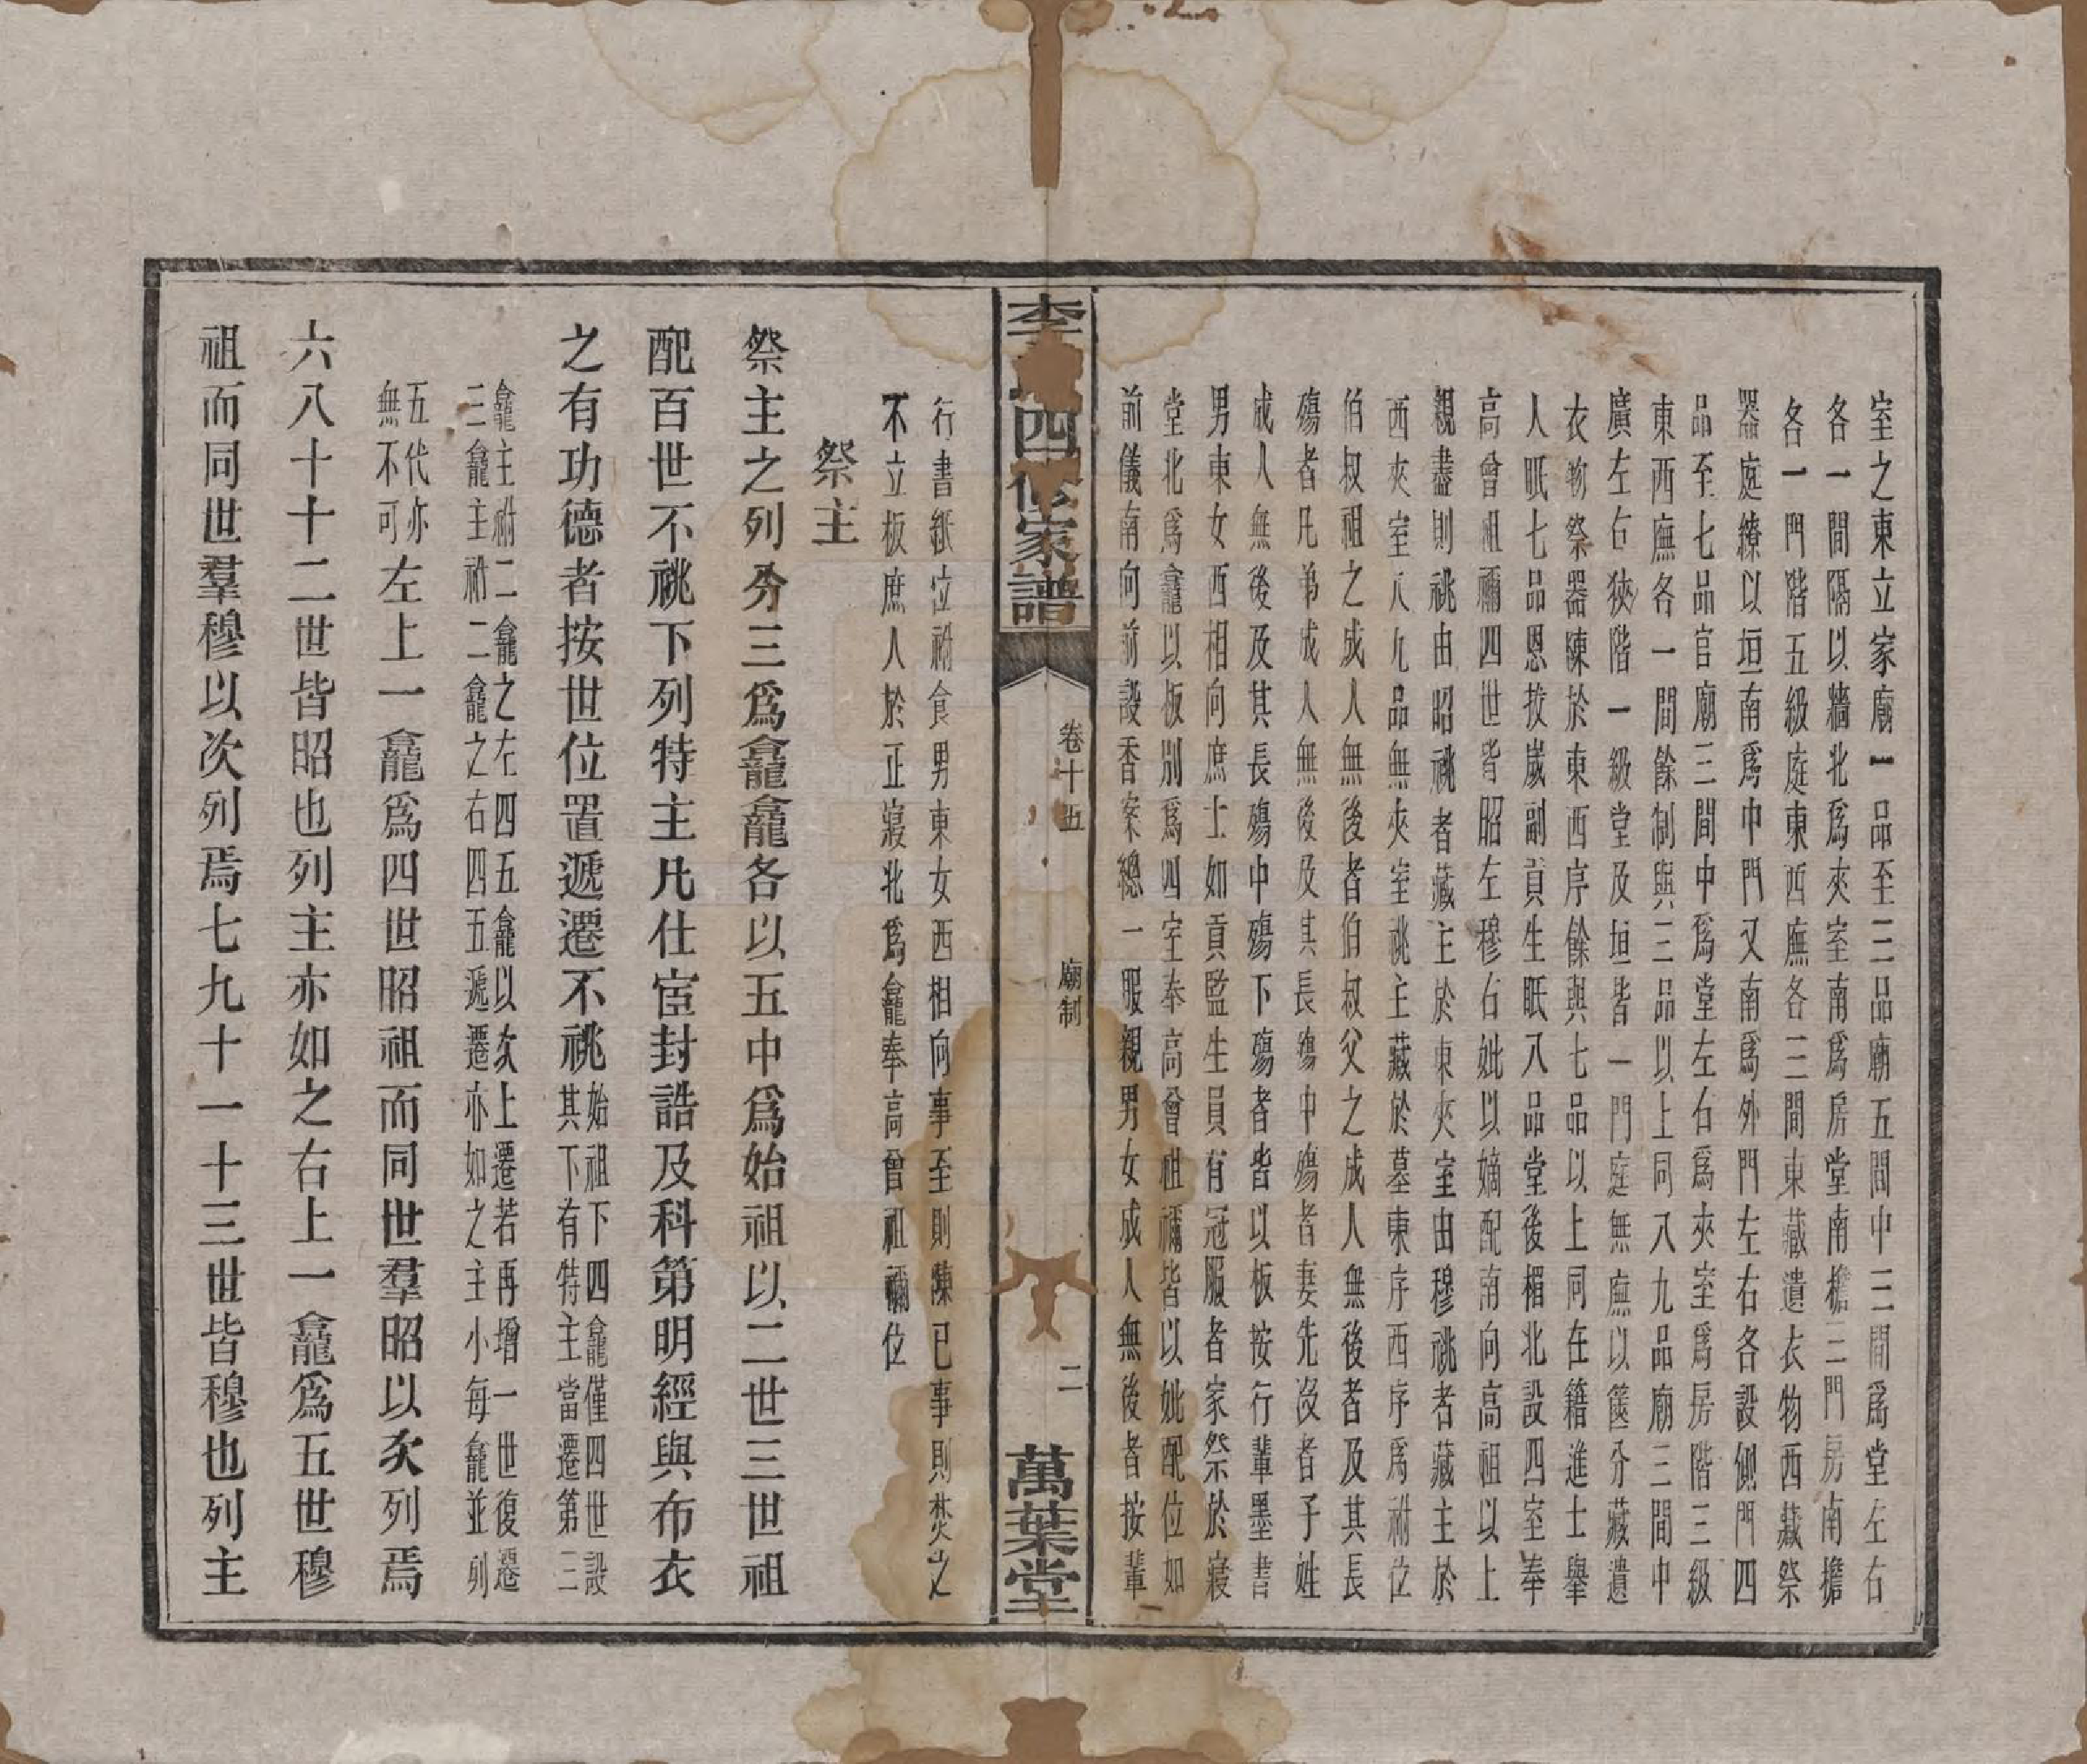 室之東立家廟一品至三品廟五間中三間爲堂左右
各一間隔以牆北爲夾室南爲房堂南檐三門房南檐
各一門階五級庭東西廡各三間東藏遺衣物西藏祭
器庭繚以垣南爲中門又南爲外門左右各設側門四
品至七品官廟三間中爲堂左右爲夾室爲房階三級
東西廡各一間餘制與三品以上同八九品廟三間中
廣左右狹階一級堂及垣皆一門庭無廡以篋分藏遺
衣物祭器陳於東西序餘與七品以上同在籍進士舉
人眂七品恩拔歲副貢生眂八品堂後楣北設四室奉
高曾祖禰四世皆昭左穆右妣以嫡配南向高祖以上
親盡則祧由昭祧者藏主於東夾室由穆祧者藏主於
西夾室八九品無夾室祧主藏於墓東序西序爲祔位
伯叔祖之成人無後者伯叔父之成人無後者及其長
殤者凡弟成人無後及其長殤中殤者妻先沒者子姓
成人無後及其長殤中殤下殤者皆以板按行輩墨書
男東女西相向庶士如貢監生員有冠服者家祭於寢
堂北爲龕以板別爲四室奉高曾祖禰皆以妣配位如
前儀南向前設香案總一服親男女成人無後者按輩
李
四
家譜
卷十五
廟制
二
萬葉堂
行書紙位祔食男東女西相向事至則陳已事則焚之
不立板庶人於正寢北爲龕奉高曾祖禰位
祭主
祭主之列分三爲龕龕各以五中爲始祖以二世三世祖
配百世不祧下列特主凡仕宦封誥及科第明經與布衣
之有功德者按世位置遞遷不祧始祖下四龕僅四世設
其下有特主當遷第三
龕主祔二龕之左四五龕以次上遷若再增一世復遷
三龕主祔二龕之右四五遞遷亦如之主小每龕並列
五代亦
無不可左上一龕爲四世昭祖而同世羣昭以次列焉
六八十十二世皆昭也列主亦如之右上一龕爲五世穆
祖而同世羣穆以次列焉七九十一十三世皆穆也列主